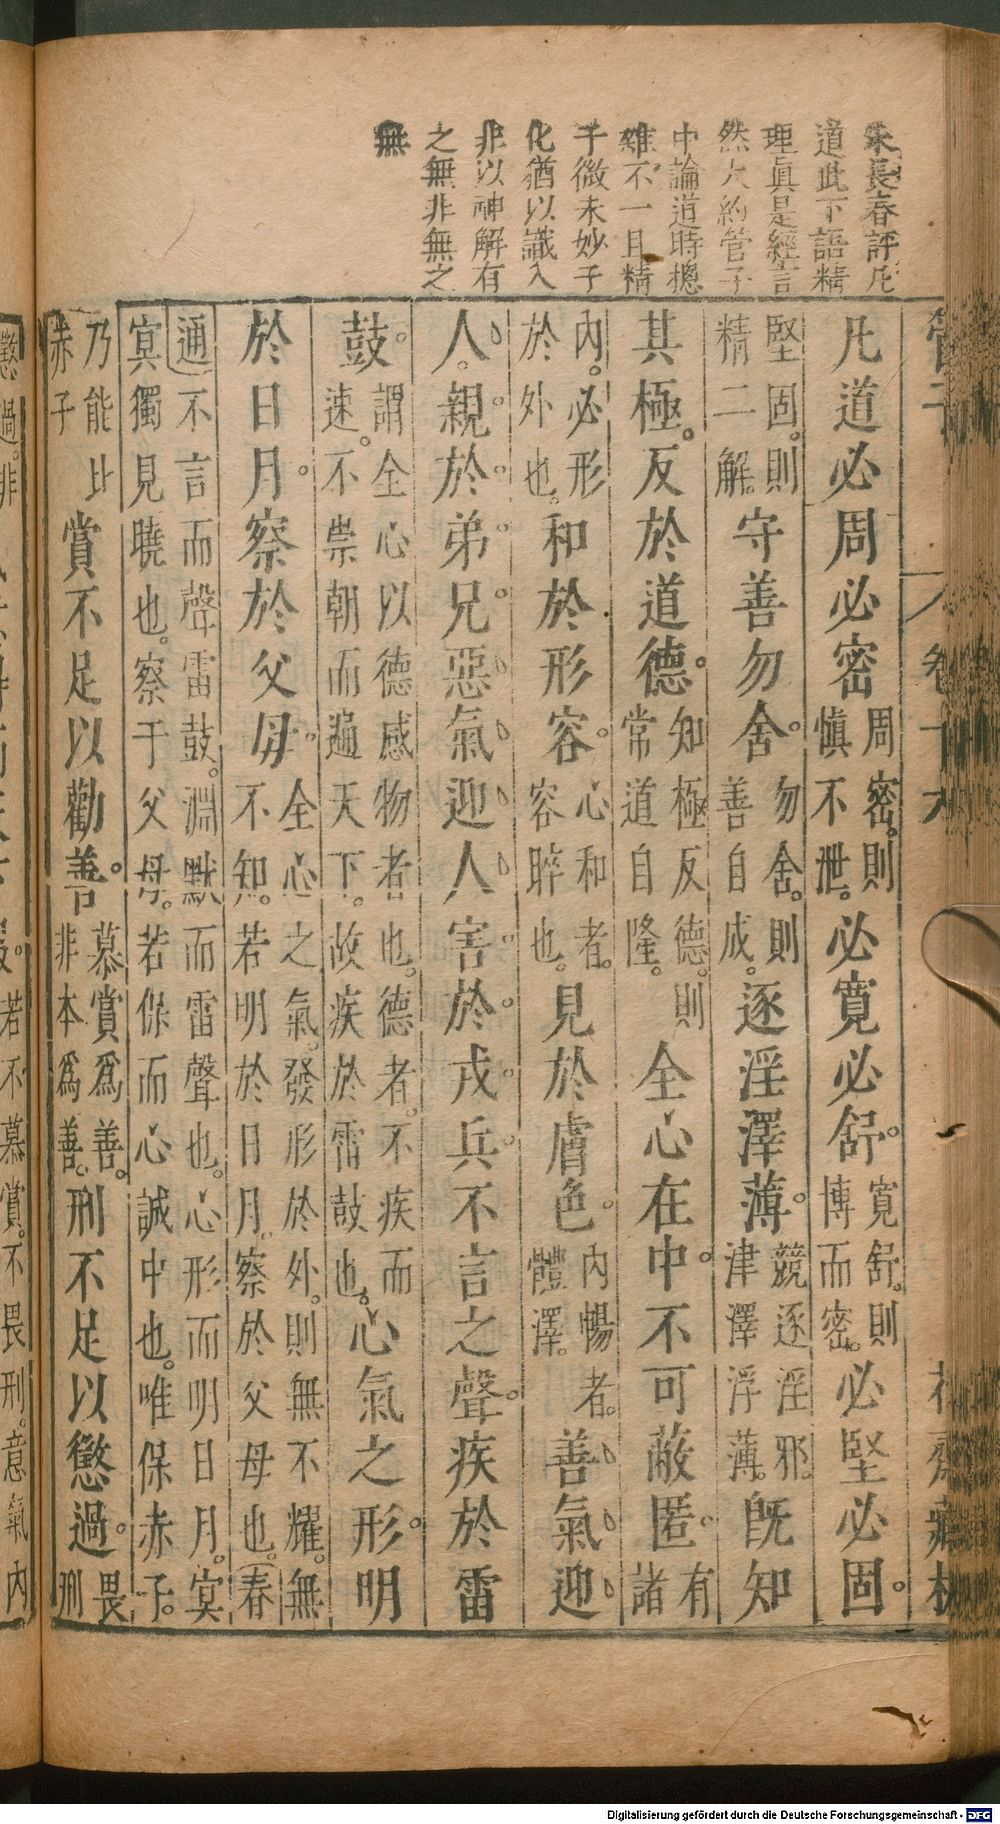 朱長春評凡
道此下語精
理眞是經言
然大約管子
中論道時摠
雖不一且精
于微未妙于
化猶以識入
非以神解有
之無非無之
無
凡道必周必密周密。則愼不泄。必寬必舒。寬舒。則博而密。必堅必固。
堅固。則精二解。守善勿舍。勿舍。則善自成。逐淫澤薄。競逐淫邪。津澤浮薄。旣知
其極。反於道德。知極反德。則常道自隆。全心在中。不可蔽匿。有諸
內。必形於外也。和於形容。心和者。容晬也。見於膚色。內暢者。體澤。善氣迎
人。親於弟兄。惡氣迎人。害於戎兵。不言之聲。疾於雷
鼓。謂全心以德感物者也。德者。不疾而速。不崇朝而遍天下。故疾於雷鼓也。心氣之形。明
於日月。察於父母。全心之氣。發形於外。則無不耀。無不知。若明於日月。察於父母也。春
通不言而聲雷鼓。淵默而雷聲也。心形而明日月。冥冥獨見曉也。察于父母。若保而心誠中也。唯保赤子。
乃能比赤子賞不足以勸善。慕賞爲善。非本爲善。刑不足以懲過。畏刑
懲過。非
若不慕賞。不畏刑。意氣內
管子
卷十六
花齋藏板
Digitalisierung gefördert durch die Deutsche Forschungsgemeinschaft - DFG